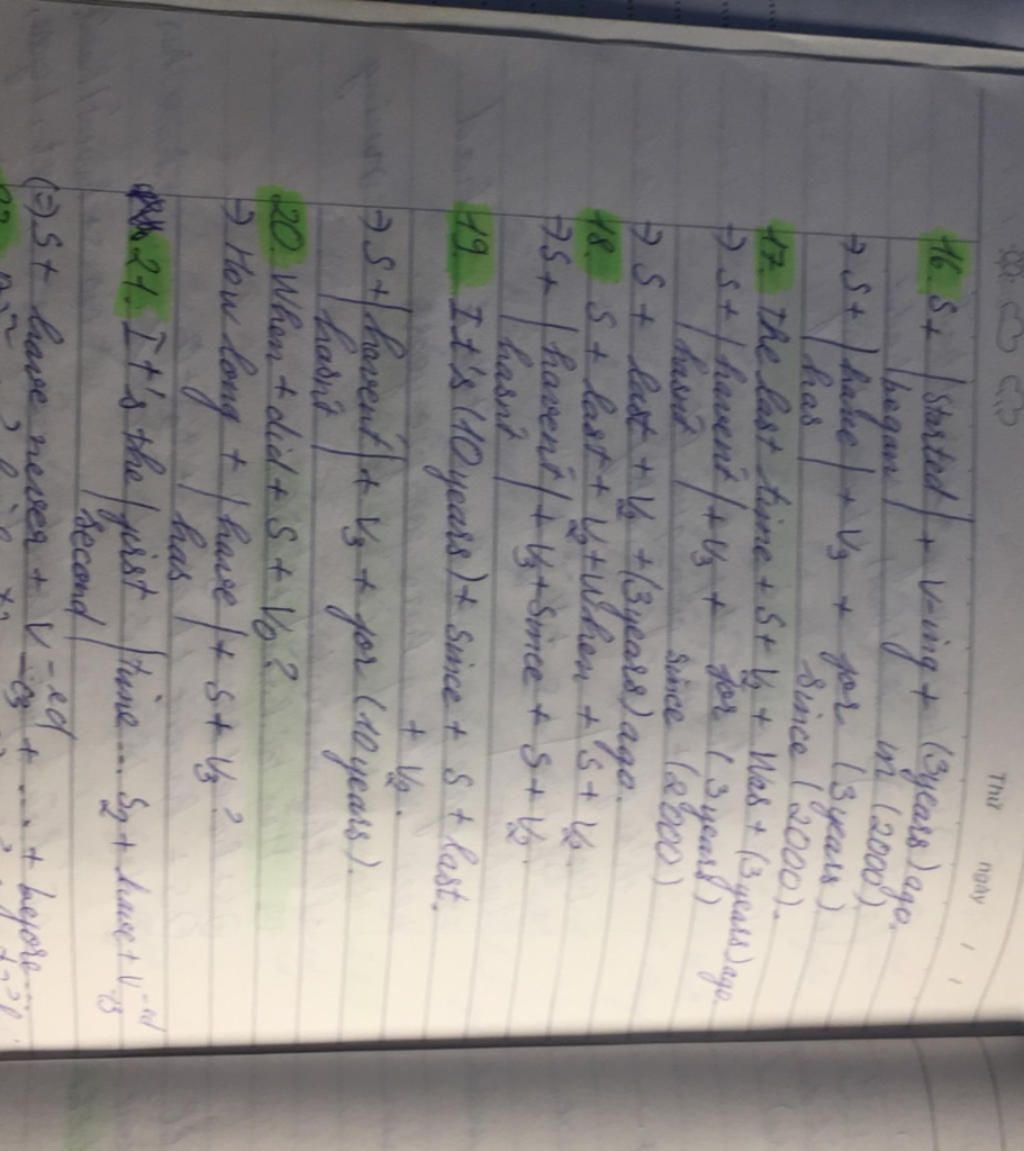 Thứ ngày / /
16. S + | started | + V-ing + (3 years) ago.
began in (2000)
→ S + | have | + V3 + for (3 years)
has since (2000).
17. The last time + S + V2 + Was + (3 years) ago
→ S + | haven't | + V3 + for (3 years)
hasn't since (2000)
→ S + last + V2 + (3 years) ago.
18. S + last + V2 + When + S + V2.
→ S + | haven't | + V3 + Since + S + V2.
hasn't
19. It's (10 years) + since + S + last.
+ V2.
→ S + | haven't | + V3 + for (10 years).
hasn't
20. When + did + S + V0?
→ How long + | have | + S + V3?
has
21. It's the | first | time... S2 + have + V-ed
Second -c3
(=) S + have never + V-ed + ... + before...
-c3